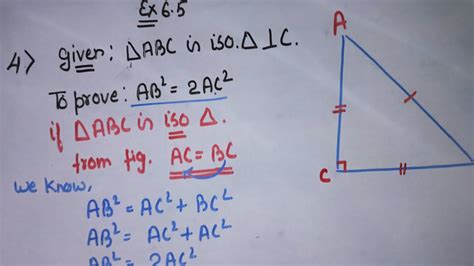 Ex 6.5
4) Given: △ABC is iso. △ ⊥ C.
To prove: AB² = 2AC²
if △ABC is iso △.
from fig. AC = BC
we know,
AB² = AC² + BC²
AB² = AC² + AC²
AB² = 2AC²
A
C